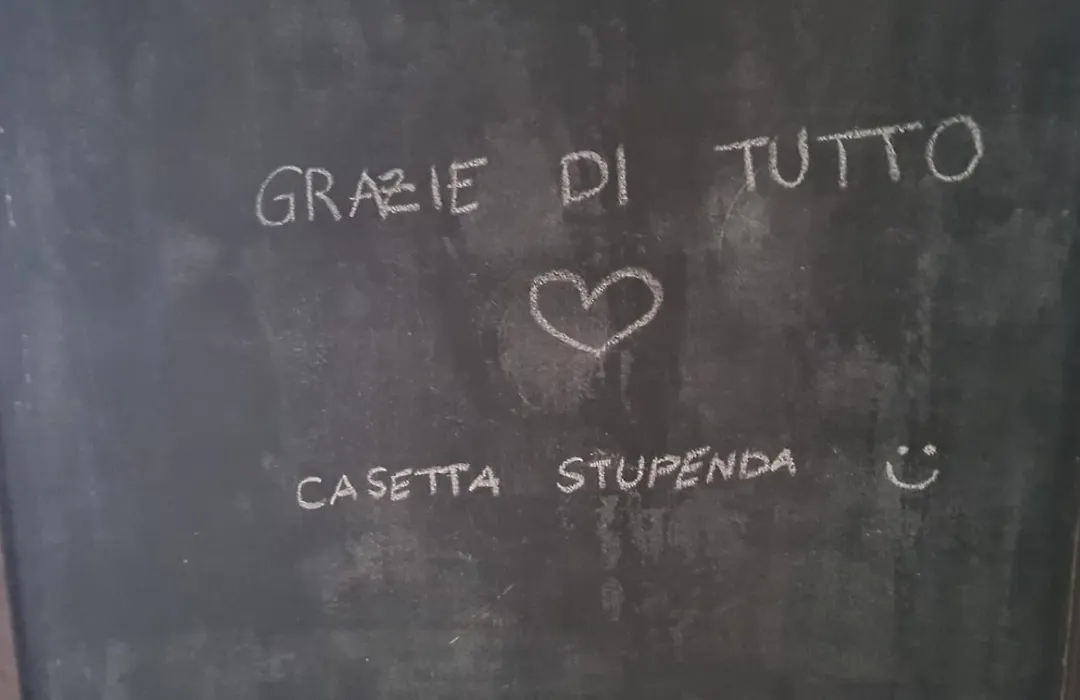 GRAZIE DI TUTTO
CASETTA STUPENDA